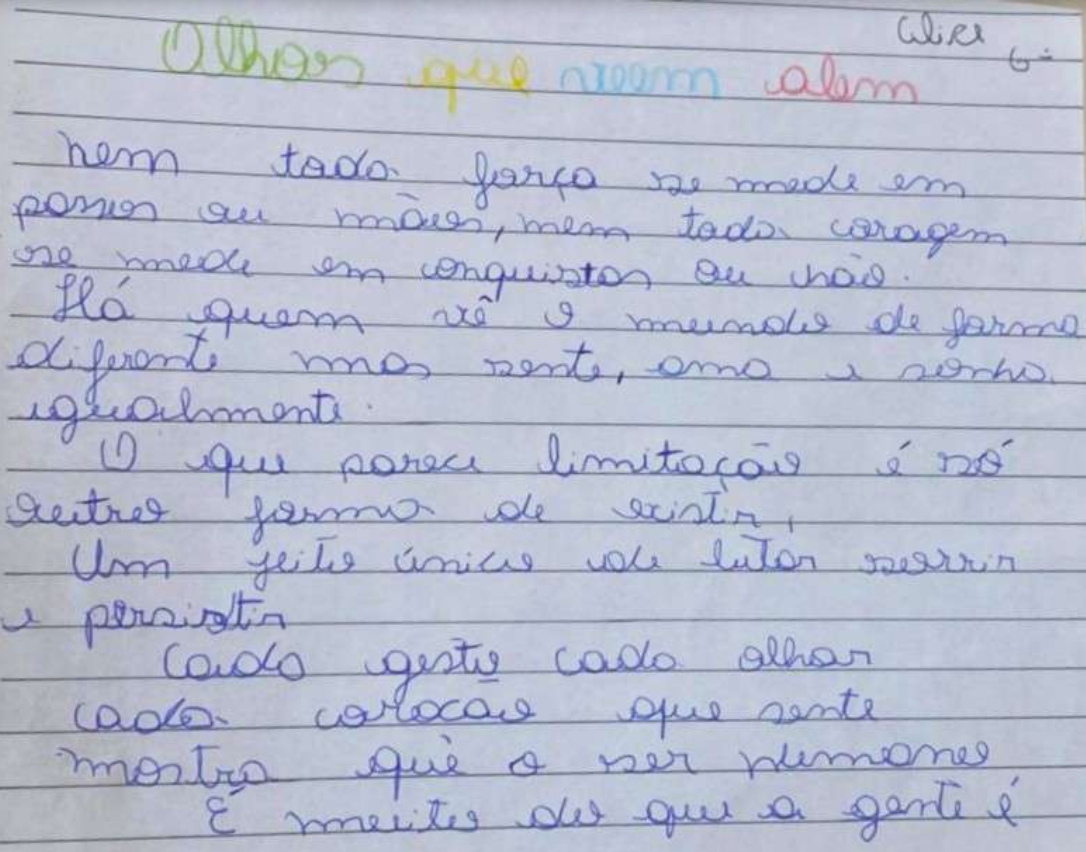 Clice 6-
Olhar que veem alem
nem toda força se mede em
passos ou mãos, nem toda coragem
se mede em conquistas ou chão.
Há quem vê o mundo de forma
diferente mas sente, ama e sonha
igualmente.
O que parece limitação é só
outro forma de existir,
Um jeito único de lutar sorrir
e persistir
Cada gesto cada olhar
cada coracao que sente
mostra que o ser humano
É muito do que a gente é